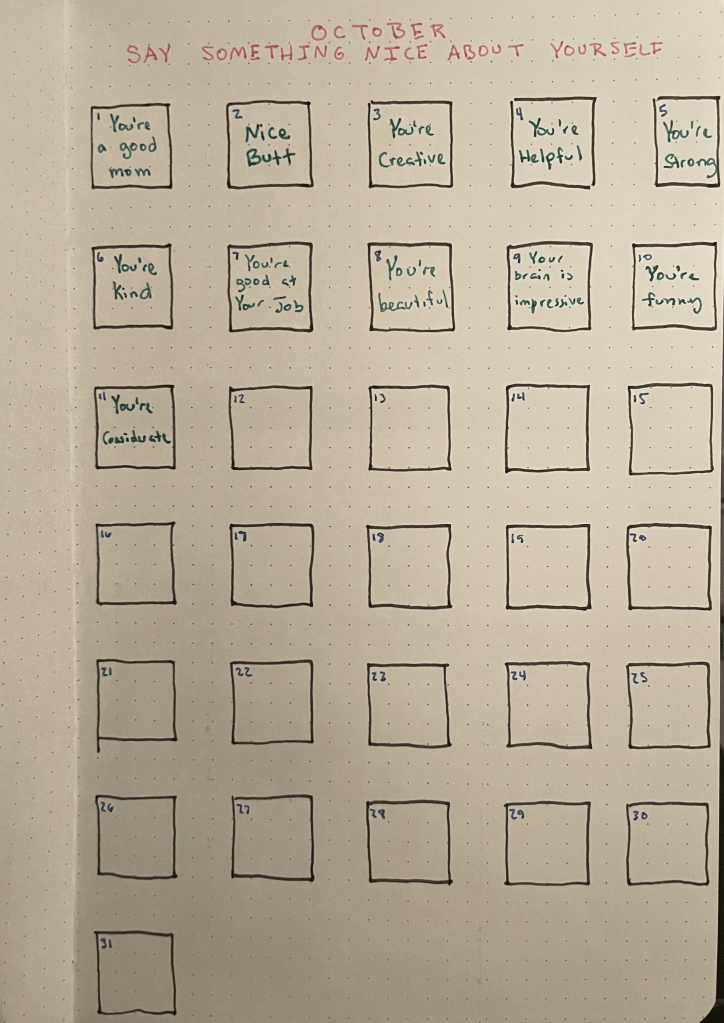 OCTOBER
SAY SOMETHING NICE ABOUT YOURSELF
1 You're
a good
mom
2 Nice
Butt
3 You're
Creative
4 You're
Helpful
5 You're
Strong
6 You're
Kind
7 You're
good at
Your Job
8 You're
beautiful
9 Your
brain is
impressive
10 You're
funny
11 You're
Considerate
12
13
14
15
16
17
18
19
20
21
22
23
24
25
26
27
28
29
30
31